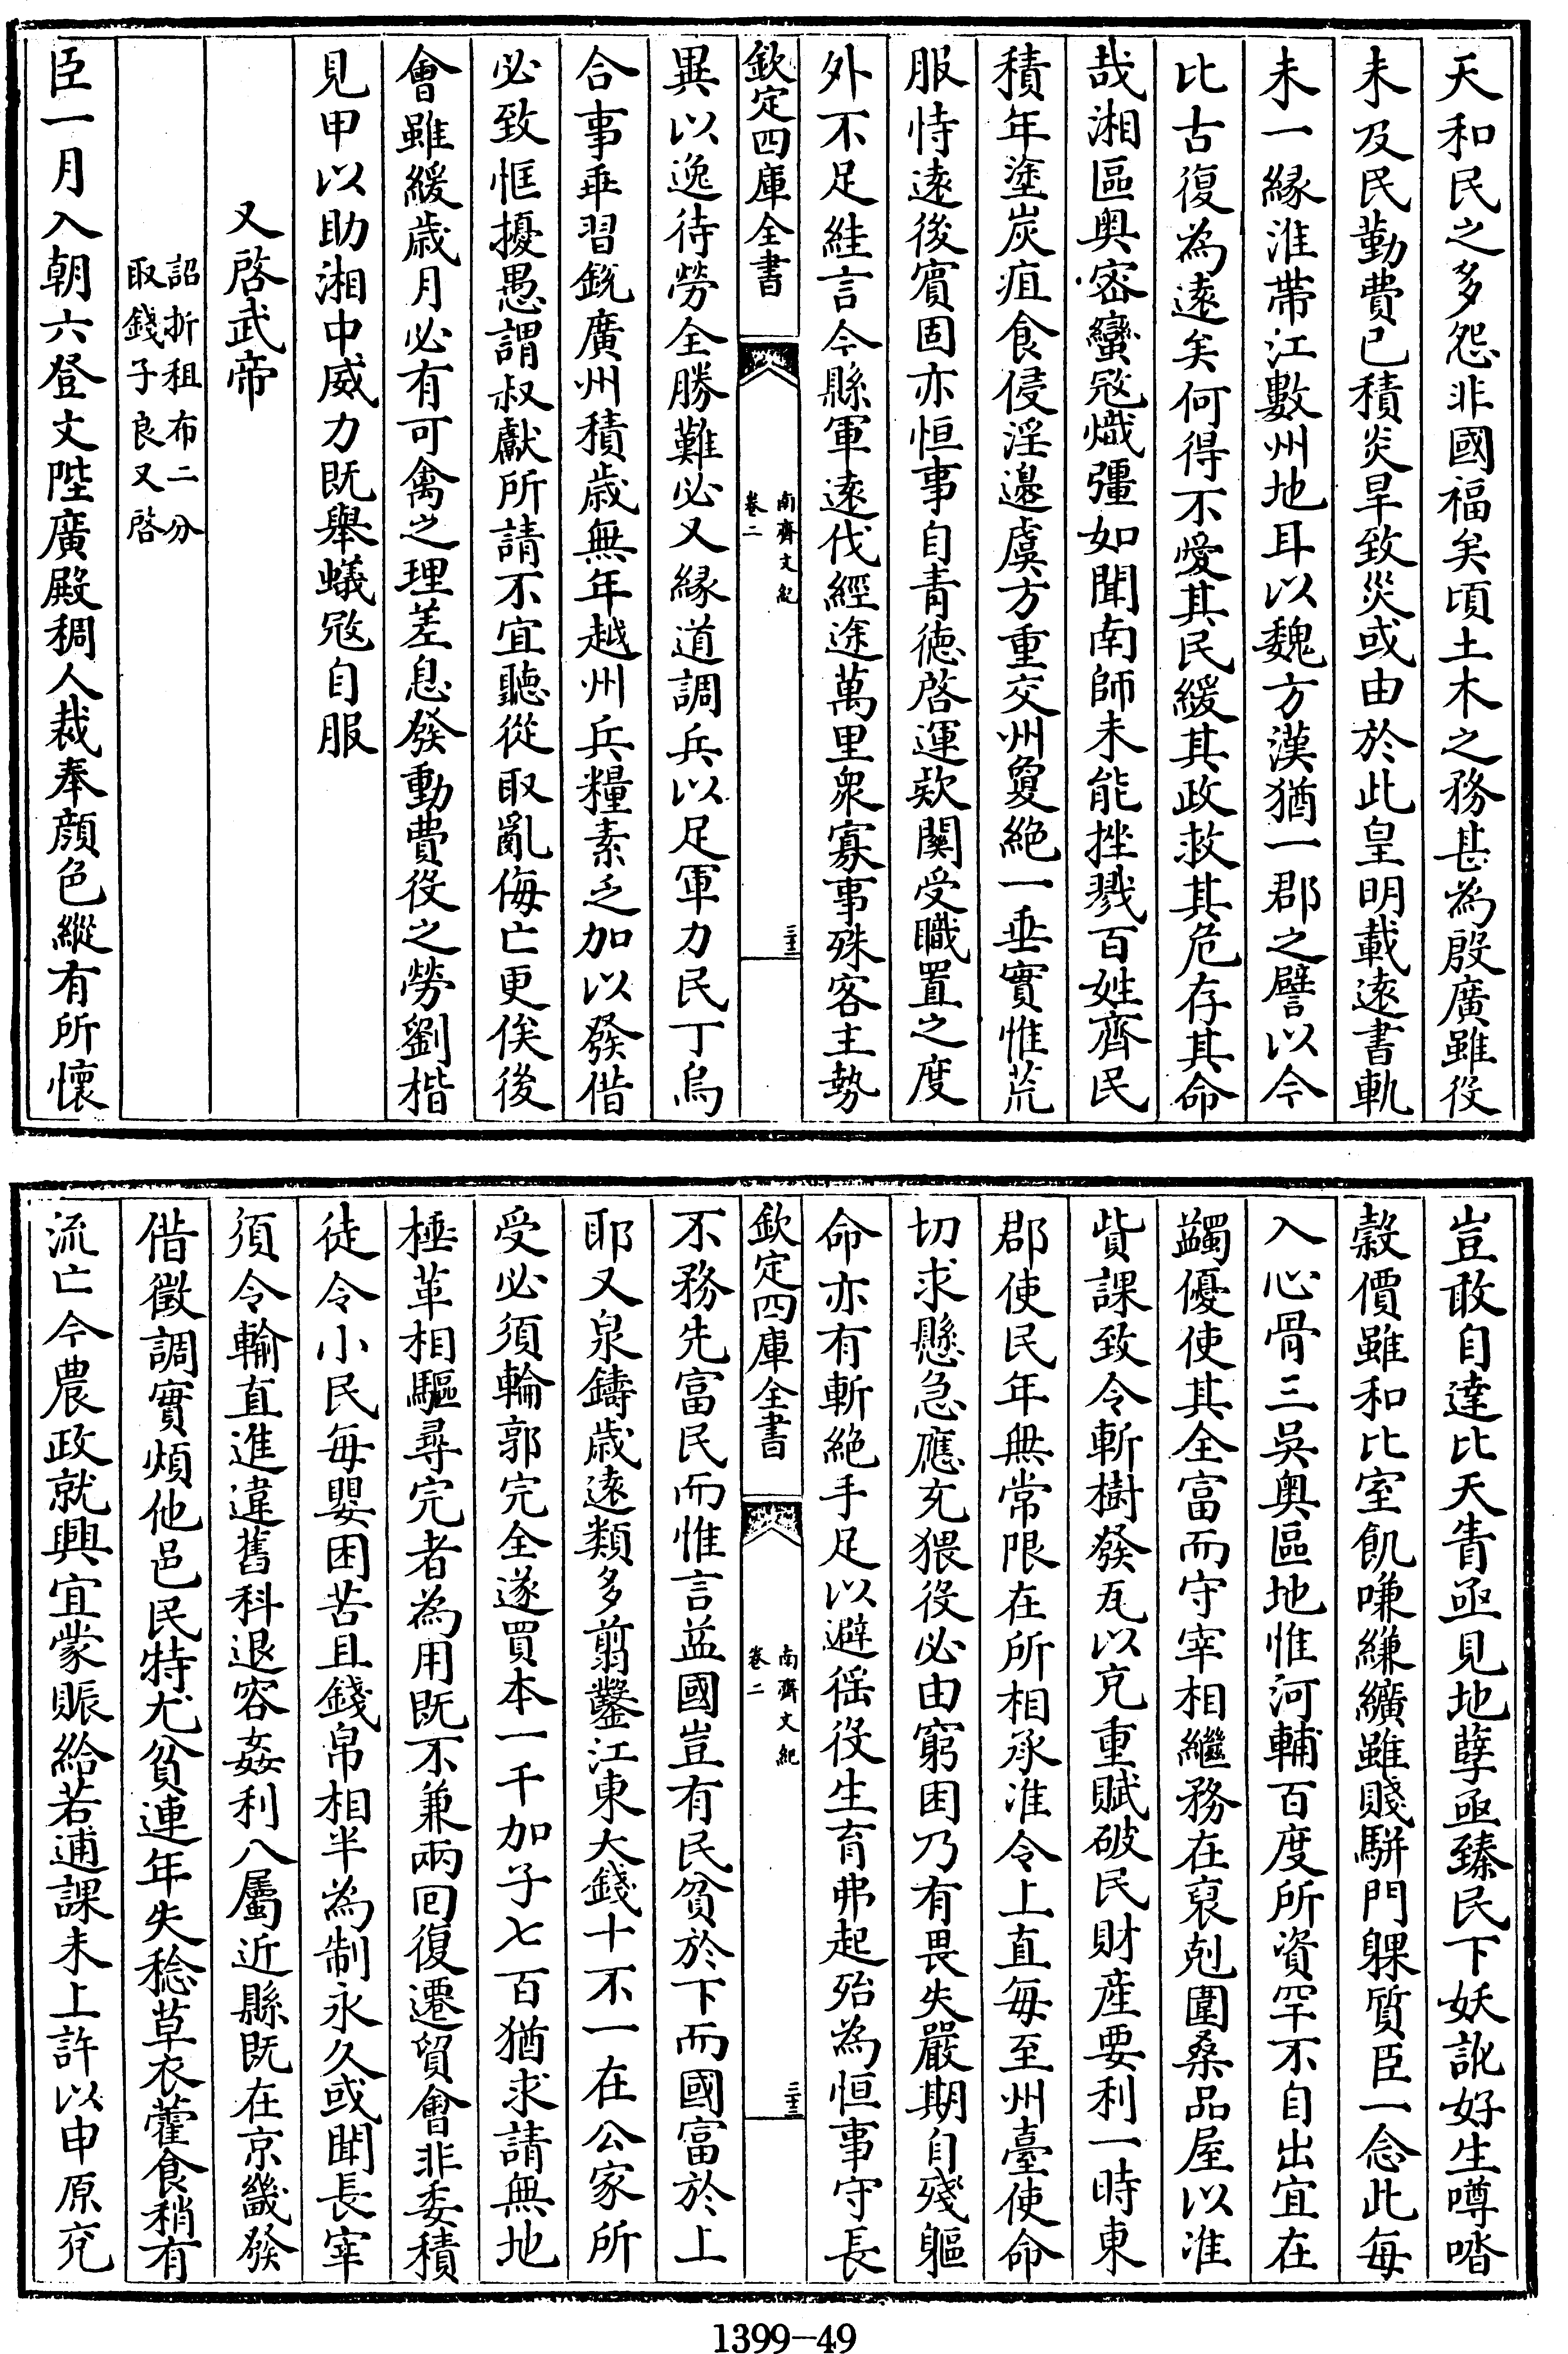 天和民之多怨非國福矣頃土木之務甚為殷廣雖役
未及民勤費已積炎旱致災或由於此皇明載逺書軌
未一縁淮帶江數州地耳以魏方漢猶一郡之譬以今
比古復為逺矣何得不愛其民緩其政救其危存其命
哉湘區奥密蠻宼熾彊如聞南師未能挫戮百姓齊民
積年塗炭疽食侵淫邊虞方重交州敻絶一垂實惟荒
服恃逺後賓固亦恒事自青徳啓運欵關受職置之度
外不足絓言今縣軍逺伐經途萬里衆寡事殊客主勢
欽定四庫全書
南齊文紀
卷二
三十三
異以逸待勞全勝難必又縁道調兵以足軍力民丁烏
合事乖習銳廣州積歳無年越州兵糧素乏加以發借
必致恇擾愚謂叔獻所請不宜聽從取亂侮亡更俟後
會雖緩歳月必有可禽之理差息發動費役之勞劉楷
見甲以助湘中威力既舉蟻宼自服
又啓武帝
詔折租布二分
取錢子良又啓
臣一月入朝六登文陛廣殿稠人裁奉顔色縱有所懷
豈敢自達比天眚亟見地孽亟臻民下妖訛好生噂㳫
穀價雖和比室飢嗛縑纊雖賤駢門躶質臣一念此每
入心骨三吳奥區地惟河輔百度所資罕不自出宜在
蠲優使其全富而守宰相繼務在裒剋圍桑品屋以准
貲課致令斬樹發瓦以充重賦破民財産要利一時東
郡使民年無常限在所相承准令上直每至州臺使命
切求懸急應充猥役必由窮困乃有畏失嚴期自殘軀
命亦有斬絶手足以避徭役生育弗起殆為恒事守長
欽定四庫全書
南齊文紀
卷二
三十三
不務先富民而惟言益國豈有民貧於下而國富於上
耶又泉鑄歳逺類多翦鑿江東大錢十不一在公家所
受必須輪郭完全遂買本一千加子七百猶求請無地
棰革相驅尋完者為用既不兼兩回復遷貿會非委積
徒令小民每嬰困苦且錢帛相半為制永久或聞長宰
須令輸直進違舊科退容姦利八屬近縣既在京畿發
借徵調實煩他邑民特尤貧連年失稔草衣藿食稍有
流亡今農政就興宜蒙賑給若逋課未上許以申原兖